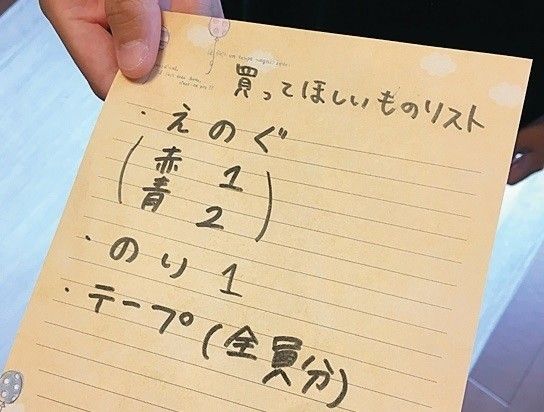 買ってほしいものリスト
・えのぐ
(赤 1
青 2)
・のり 1
・テープ(全員分)